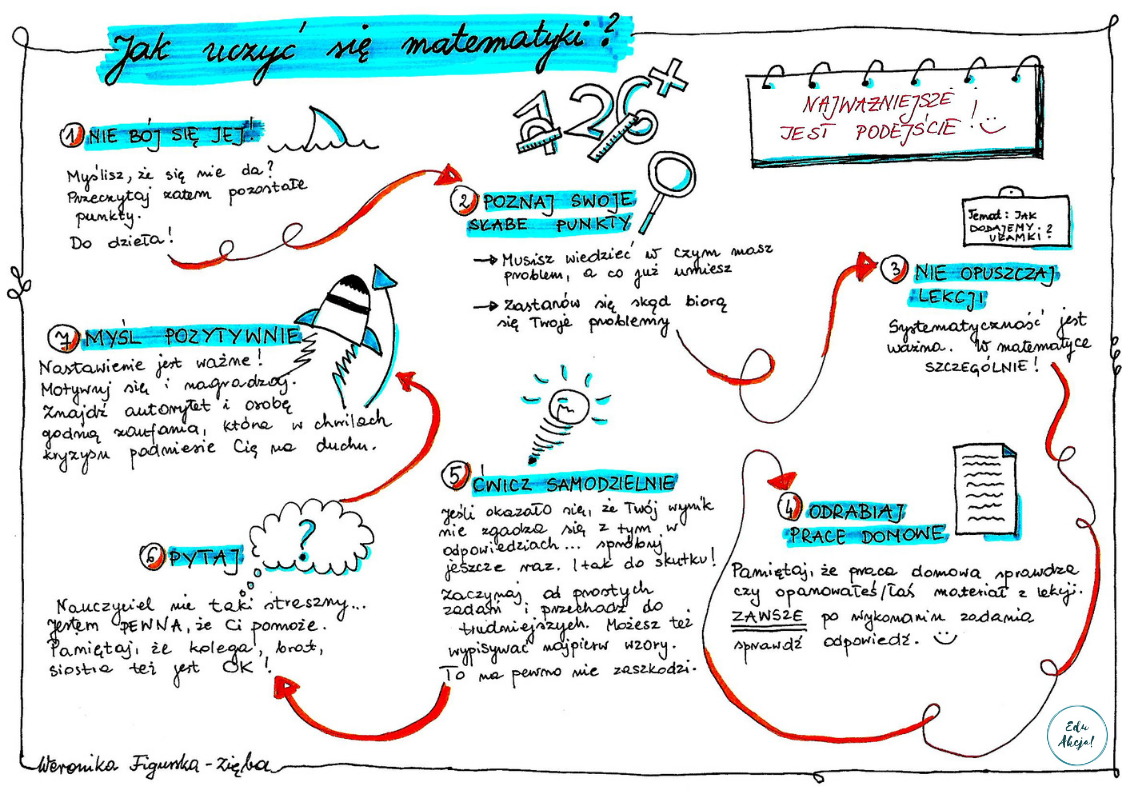 Jak uczyć się matematyki?
NAJWAŻNIEJSZE
JEST PODEJŚCIE!
126+
1 NIE BÓJ SIĘ JEJ!
Myślisz, że się nie da?
Przeczytaj zatem pozostałe
punkty.
Do dzieła!
2 POZNAJ SWOJE
SŁABE PUNKTY
Musisz wiedzieć w czym masz
problem, a co już umiesz
Zastanów się skąd biorą
się Twoje problemy
Temat: JAK
DODAJEMY
UŁAMKI?
3 NIE OPUSZCZAJ
LEKCJI
Systematyczność jest
ważna. W matematyce
SZCZEGÓLNIE!
4 ODRABIAJ
PRACE DOMOWE
Pamiętaj, że praca domowa sprawdza
czy opanowałeś/łaś materiał z lekcji.
ZAWSZE po wykonaniu zadania
sprawdź odpowiedź.
5 ĆWICZ SAMODZIELNIE
Jeśli okazało się, że Twój wynik
nie zgadza się z tym w
odpowiedziach... spróbuj
jeszcze raz. I tak do skutku!
Zaczynaj od prostych
zadań i przechodź do
trudniejszych. Możesz też
wypisywać najpierw wzory.
To na pewno nie zaszkodzi.
6 PYTAJ
?
Nauczyciel nie taki straszny...
Jestem PEWNA, że Ci pomoże.
Pamiętaj, że kolega, brat,
siostra też jest OK!
7 MYŚL POZYTYWNIE
Nastawienie jest ważne!
Motywuj się i nagradzaj.
Znajdź autorytet i osobę
godną zaufania, która w chwilach
kryzysu podniesie Cię na duchu.
Weronika Figurska-Zięba
Edu
Akcja!